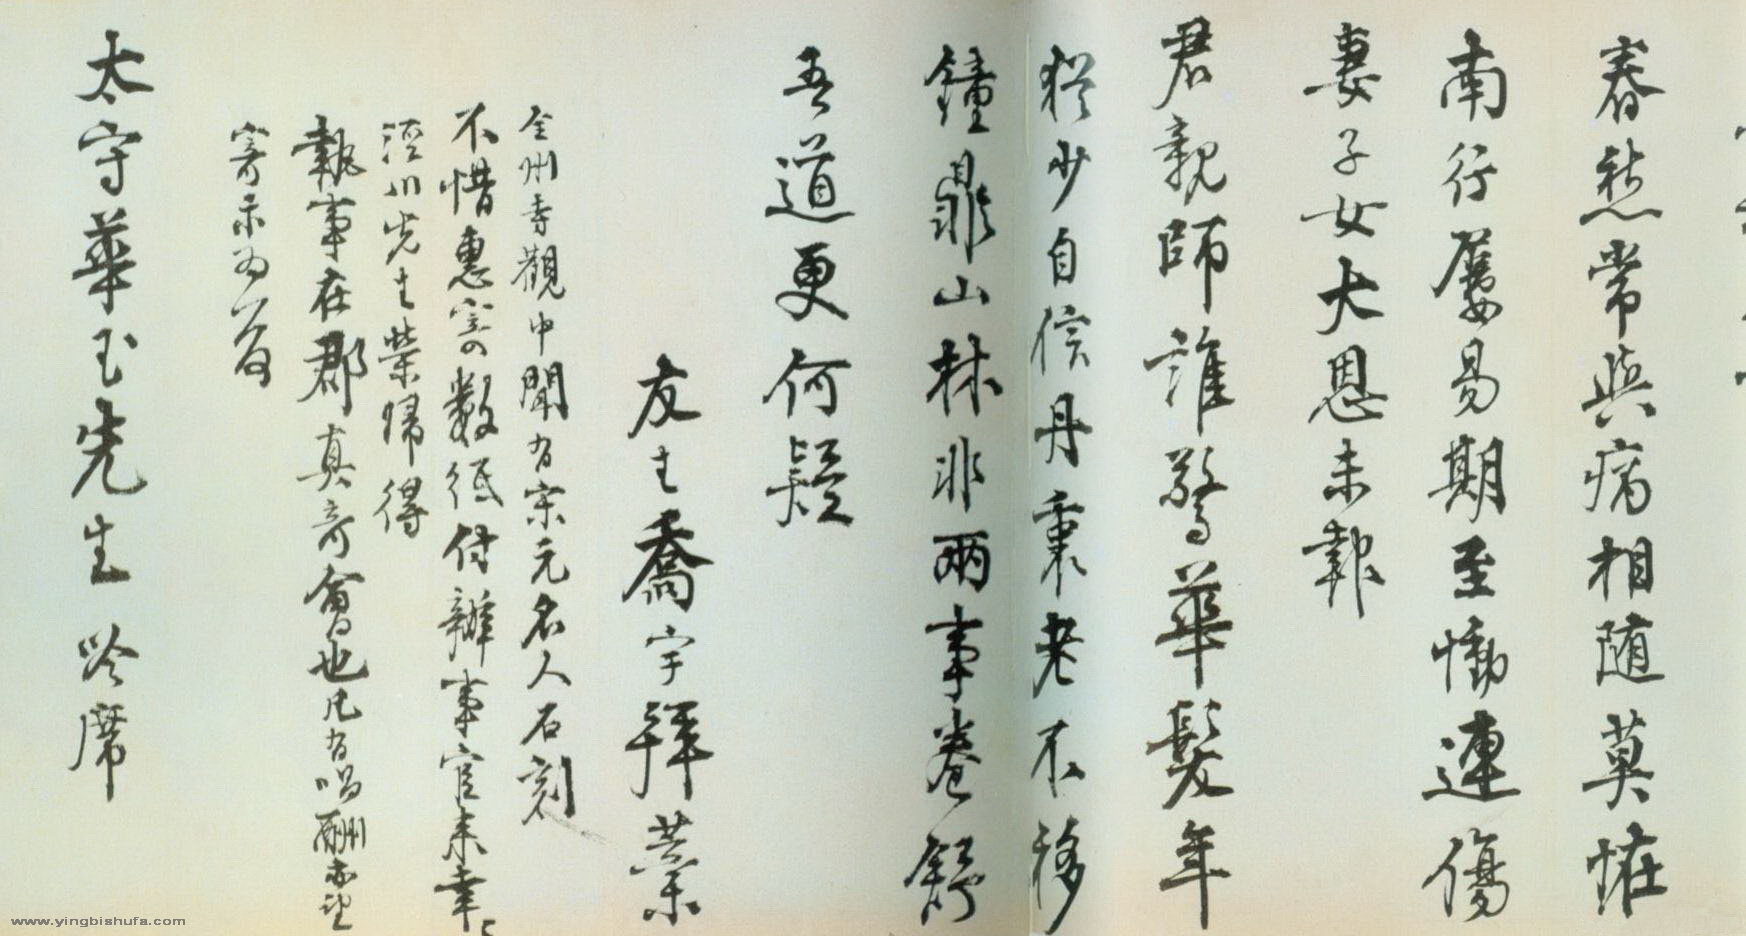 春愁常與病相随莫怪
南行屢易期至慟連傷
妻子女大恩未報
君親師誰驚華髮年
猶少自信丹衷老不移
鐘鼎山林非兩事卷舒
吾道更何疑
友生喬宇拜藁
全州寺觀中聞有宋元名人石刻
不惜惠寄數紙付辦事官来幸
涇川先生榮歸得
執事在郡真奇會也凡有唱酬亦望
寄示為荷
太守華玉先生吟席
www.yingbishufa.com